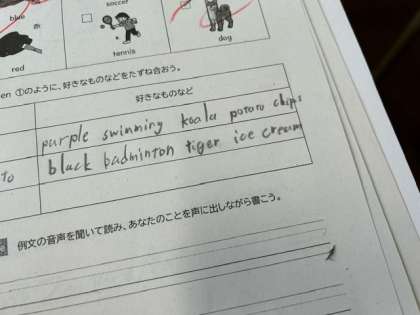 soccer
blue
red
tennis
dog
en ①のように、好きなものなどをたずね合おう。
好きなものなど
purple swimming koala potato chips
to black badminton tiger ice cream
例文の音声を聞いて読み、あなたのことを声に出しながら書こう。